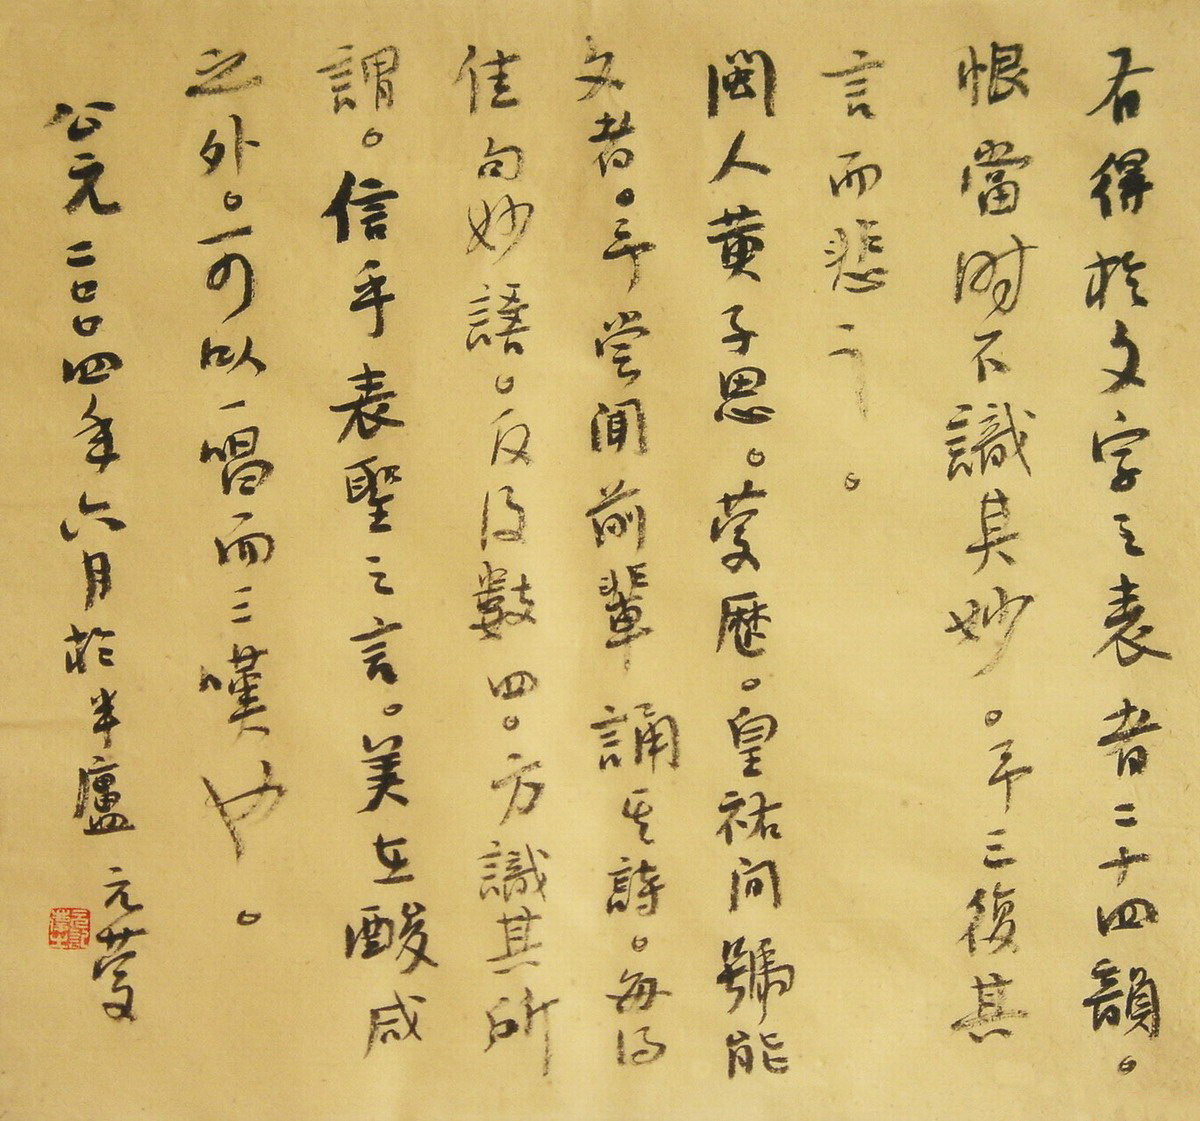 右得於文字之表者二十四韻。
恨當時不識其妙。予三復其
言而悲之。
閩人黄子思。慶歷。皇祐间號能
文者。予嘗聞前輩誦其詩。每得
佳句妙語。反復數四。方識其所
謂。信乎表聖之言。美在酸咸
之外。可以一唱而三嘆也。
公元二〇〇四年六月於半廬 元